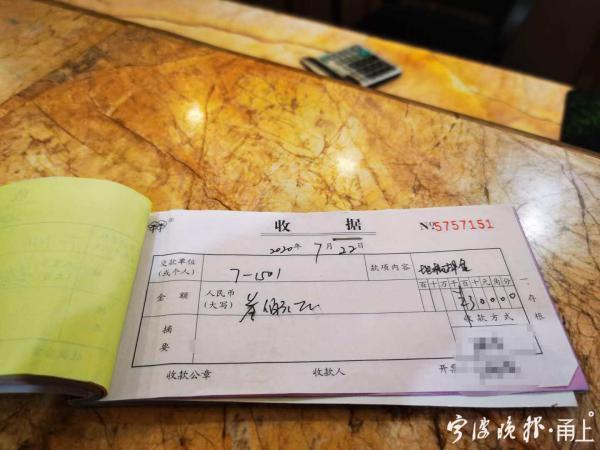 收 据 № 5757151
2020年 7月 22日
交款单位
(或个人) 7-1501 款项内容
百十万千百十元角分
¥30000
金 额 人民币
(大写) 叁佰元
摘
要 收款方式
收款公章 收款人 开票
一存根
宁波晚报·甬上